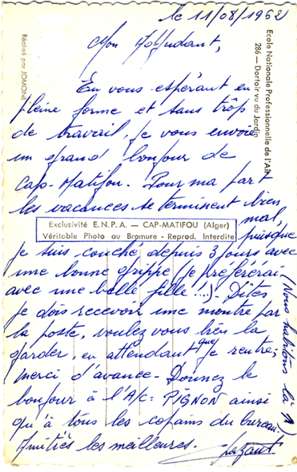 le 11/08/1962
Mon Adjudant,
En vous espérant en
pleine forme et sans trop
de travail, je vous envoie
un grand bonjour de
Cap-Matifou. Pour ma part
les vacances se terminent bien
mal, puisque
je suis couché depuis 3 jours avec
une bonne grippe (je préférerai
avec une belle fille!!). Dites,
je dois recevoir une montre par
la poste, voulez vous bien la
garder, en attendant que je rentre;
merci d'avance. Donnez le
bonjour à l'A/c: PIGNON ainsi
qu'à tous les copains du bureau.
Amitiés les meilleures.
(Nous habitons là ↑)
Ecole Nationale Professionnelle de l'AIR
286 — Dortoir vu du Jardin
Réalisé par JOMONE
Exclusivité E.N.P.A. — CAP-MATIFOU (Alger)
Véritable Photo au Bromure - Reprod. Interdite